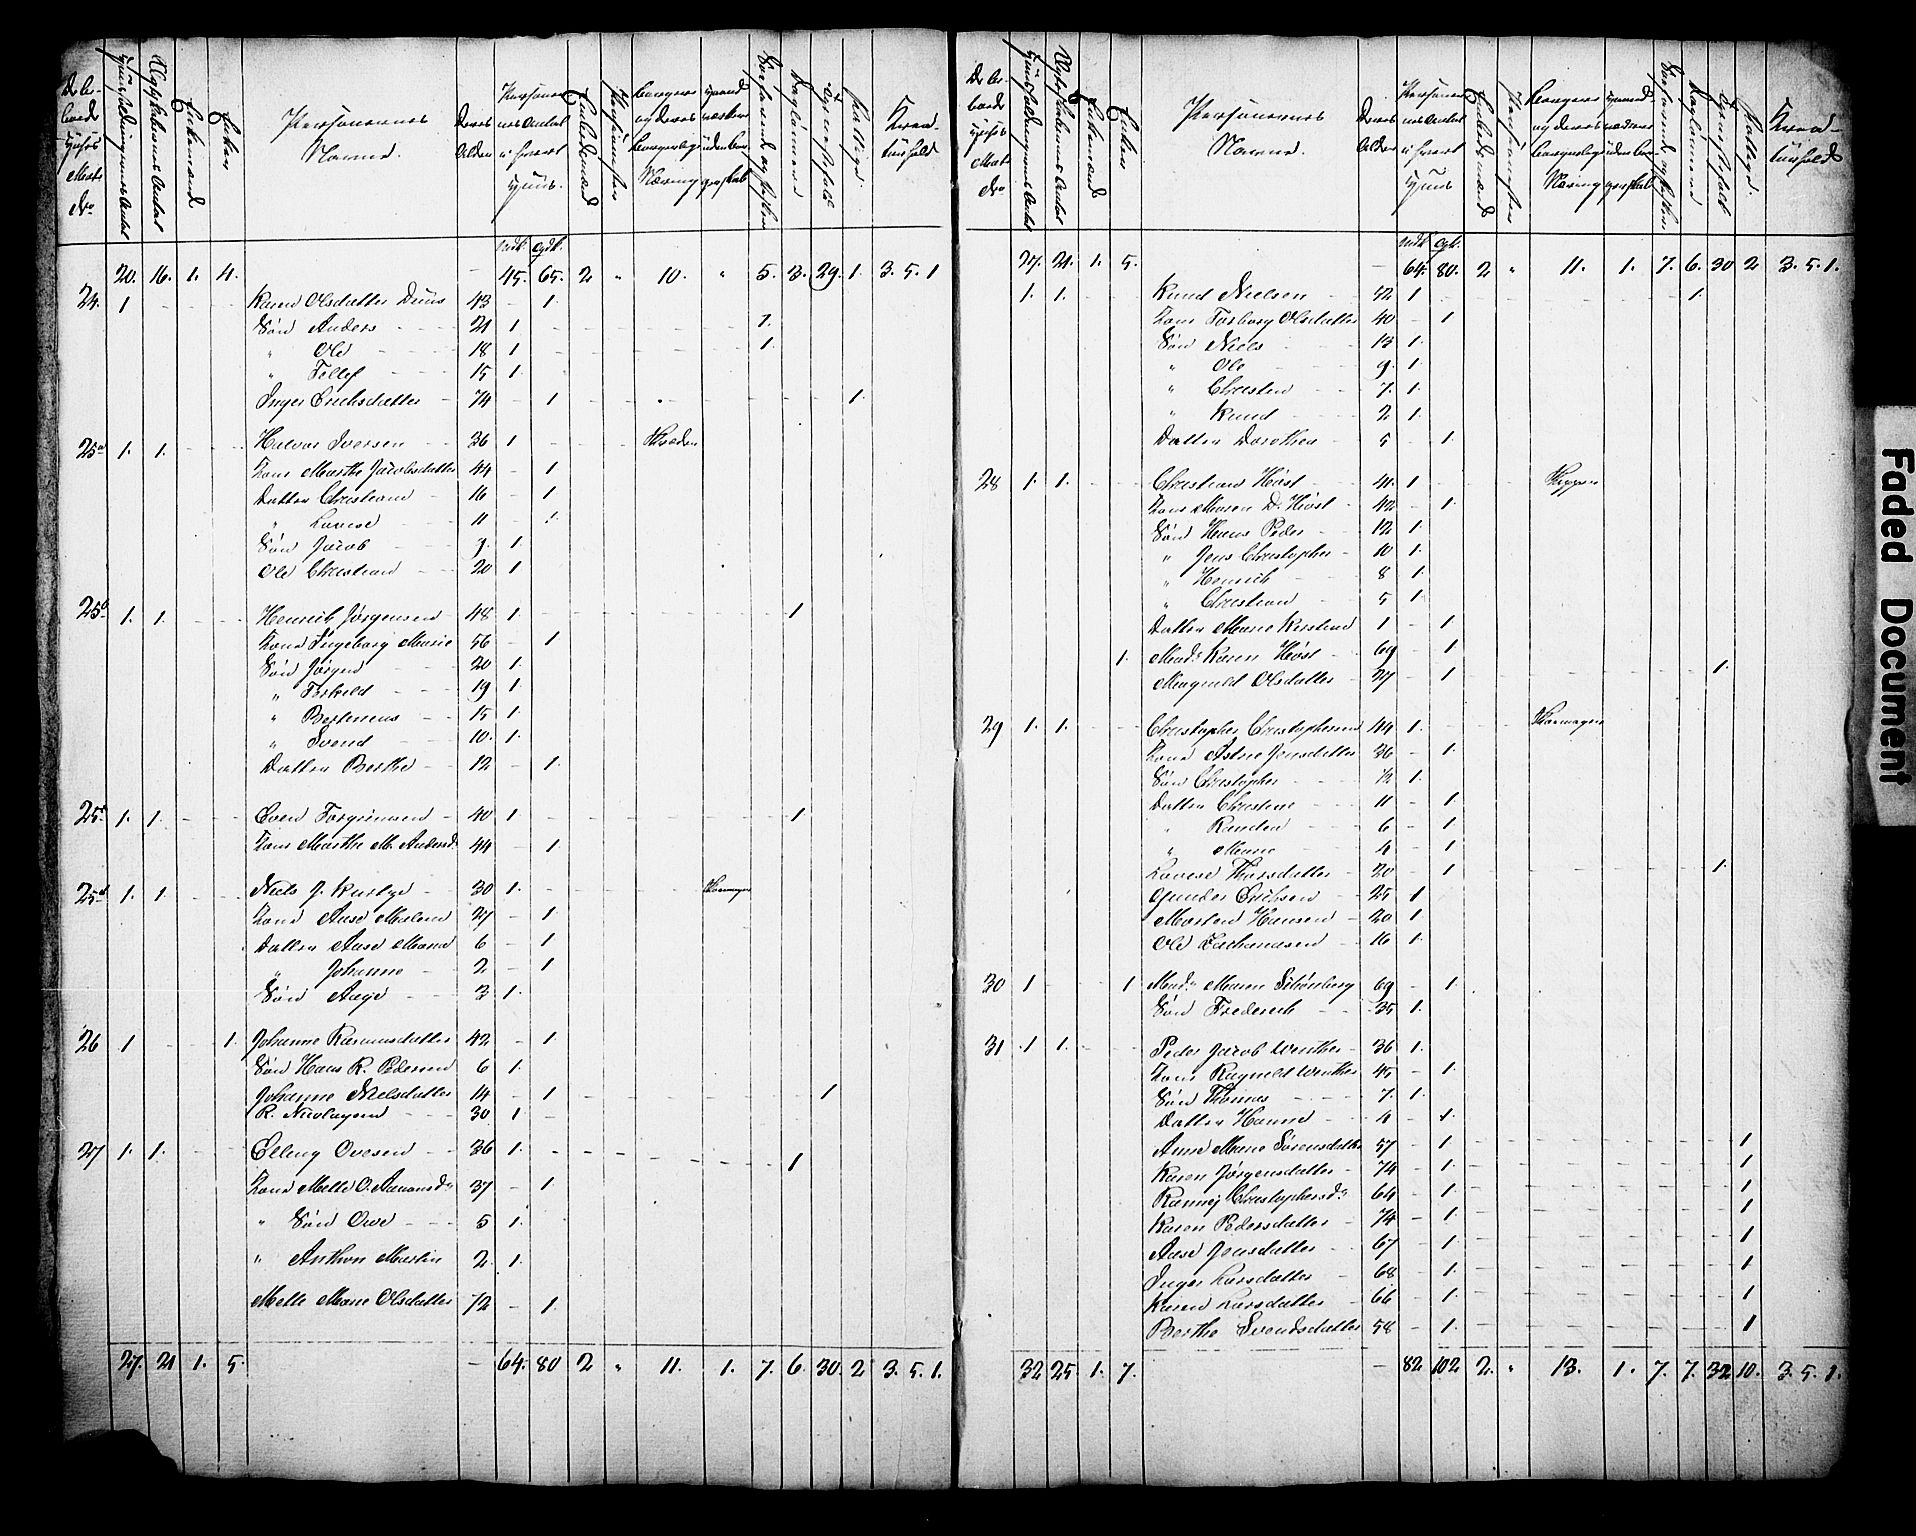 De be-
boede
Huses
Matr
No
Huusholdningernes Antal
Ægteskabernes Antal
Enkemænd
Enker
Personernes
Navne.
Deres
Alder
Personer-
nes Antal
i hvert
Huus.
Embedsmænd
Borgere
og deres
borgerlig
Næring
Søefarende og Fiskere
Dagleiere
Tjenestefolk
Fattige
Krea-
turhold
mdk. qdk.
20. 16. 1. 4. - 45. 65. 2 " 10. " 5. 3. 29. 1. 3. 5. 1
24. 1 - - - Karen Olsdatter Duus 43 - 1.
Søn Anders 21 1 - - - - 1.
" Ole 18 1 - - - - 1.
" Tellef 15 1.
Inger Erichsdatter - 74 - 1 - - - - 1.
25a 1. 1. - - Halvor Iversen 36 1 - - - Skræder
Kone Marthe Jacobsdatter 44 - 1
Datter Christiane 16 - 1
" Lovise 11 - 1.
Søn Jacob 7. 1.
Ole Christian 20 1
25b 1. 1. - - Henrich Jørgensen 48 1. - - - - 1
Kone Ingeborg Marie 56 - 1
Søn Jørgen 20 1.
" Torkild 19 1.
" Bertinius 15 1.
" Svend 10. 1.
Datter Berthe 12 - 1.
25c 1. 1. - - Even Torgrimsen 40 1 - - - - 1.
Kone Marthe M. Andersd. 44 - 1.
25d 1. 1. - - Niels J. Kurbye 30 1. - - -
Kone Aase Malene 27 - 1.
Datter Aase Marie 6 - 1
" Johanne 2 - 1
Søn Aage 3 1.
26 1 - - 1. Johanne Rasmusdatter 42 - 1
Søn Hans R. Pedersen 6 1.
Johanne Nielsdatter 14 - 1 - - - - 1
R. Nicolaysen 30 1 -
27 1. 1. - - Elling Ovesen 36 1. - - - - 1
Kone Mette O. Aanonsd. 37 - 1
" Søn Owe 5 1.
" Anthon Martin 2 1.
Mette Marie Olsdatter 72 - 1.
27. 21 1. 5. - 64. 80 2 " 11. 1. 7. 6. 30. 2 3. 5. 1.
De be-
boede
Huses
Matr
No
Huusholdningernes Antal
Ægteskabernes Antal
Enkemænd
Enker
Personernes
Navne.
Deres
Alder
Personer-
nes Antal
i hvert
Huus
Embedsmænd
Borgere
og deres
borgerlig
Næring
Søefarende og Fiskere
Dagleiere
Tjenestefolk
Fattige
Krea-
turhold
mdk. qdk.
27. 21. 1. 5. - 64. 80. 2 " 11. 1. 7. 6. 30 2 3. 5. 1.
1. 1. - - Knud Nielsen 42 1 - - - - 1.
Kone Torborg Olsdatter 40 - 1
Søn Niels 13 1.
" Ole 9. 1.
" Christen 7. 1.
" Knud 2 1.
Datter Dorothea 5 - 1.
28 1. 1. - - Christian Høst 41. 1 - - - Skipper
Kone Maren D. Høst 42 - 1.
Søn Hans Peder 12 1.
" Jens Christopher 10 1.
" Henrich 8 1.
" Christian 5 1.
Datter Marie Kirstine 1 - 1
1. Mad. Karen Høst 69 - 1
Magnild Olsdatter 27 - 1 - - - - 1.
29 1. 1. - - Christopher Christophersen 44 1. - - -
Kone Astrie Jensdatter 36 - 1.
Søn Christopher 12 1.
Datter Christine 11 - 1.
" Randea 6 - 1
" Marie 4 - 1
Lovise Thorsdatter 20 - 1 - - - - 1.
Gunder Erichsen 25 1
Morten Hansen 20 1
Ole Zachariasen 16 1.
30 1 - - 1 Mad. Maren Schønberg 69 - 1.
Søn Frederich 35 1.
31 1 1. - - Peder Jacob Winther 36 1.
Kone Ragnild Winther 45 - 1.
Søn Thomas 7. 1.
Datter Hanne 4 - 1.
Anne Marie Sørensdatter 57 - 1 - - - - 1
Karen Jørgensdatter 74 - 1. - - - - 1
Rannej Christophersd. 64 - 1. - - - - 1
Karen Pedersdatter 74 - 1. - - - - 1
Aase Jensdatter 67 - 1. - - - - 1
Inger Larsdatter 68 - 1. - - - - 1
Karen Larsdatter 66 - 1. - - - - 1
Berthe Svendsdatter 58 - 1. - - - - 1
32 25 1. 7. - 82 102 2. " 13. 1. 7. 7. 32 10. 3. 5. 1.
Faded Document